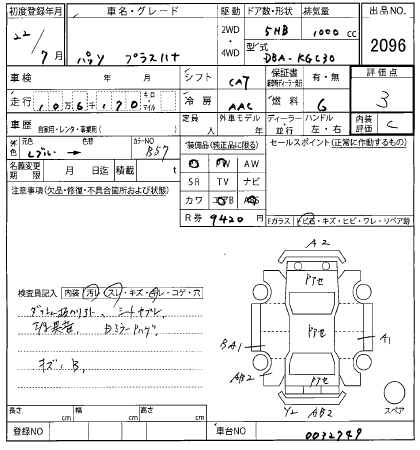 初度登録年月 車名・グレード 駆動 ドア数・形状 排気量 出品NO.
22/7月 パッソ プラスハナ 2WD 4WD 5HB 1000 cc 2096
型式 DBA-KGC30
車検 年 月 シフト CA7 保証書 有・無 評価点 3
走行 10万6千170 キロ・マイル 冷房 AAC 燃料 G
車歴 自家用・レンタ・事業用( ) 定員 人 外車モデル 年 ディーラー・並行 ハンドル 左・右 内装評価 C
外色 元色 色替 カラーNO B57
装備品(純正品に限る) セールスポイント(正常に作動するもの)
名義変更期限 月 日迄 積載 t
PS PW AW
SR TV ナビ
カワ エアB ABS
注意事項(欠品・修復・不具合箇所および状態)
R券 9420 円
Fガラス トビ石・キズ・ヒビ・ワレ・リペア跡
A2
アセ
検査員記入 内装 汚レ・スレ・キズ・切レ・コゲ・穴
シートヤブレ
キズ、B
BA1 A1
AB2
アセ
Y2 AB2
スペア
長さ cm 幅 cm 高さ cm
登録NO 車台NO 0032749